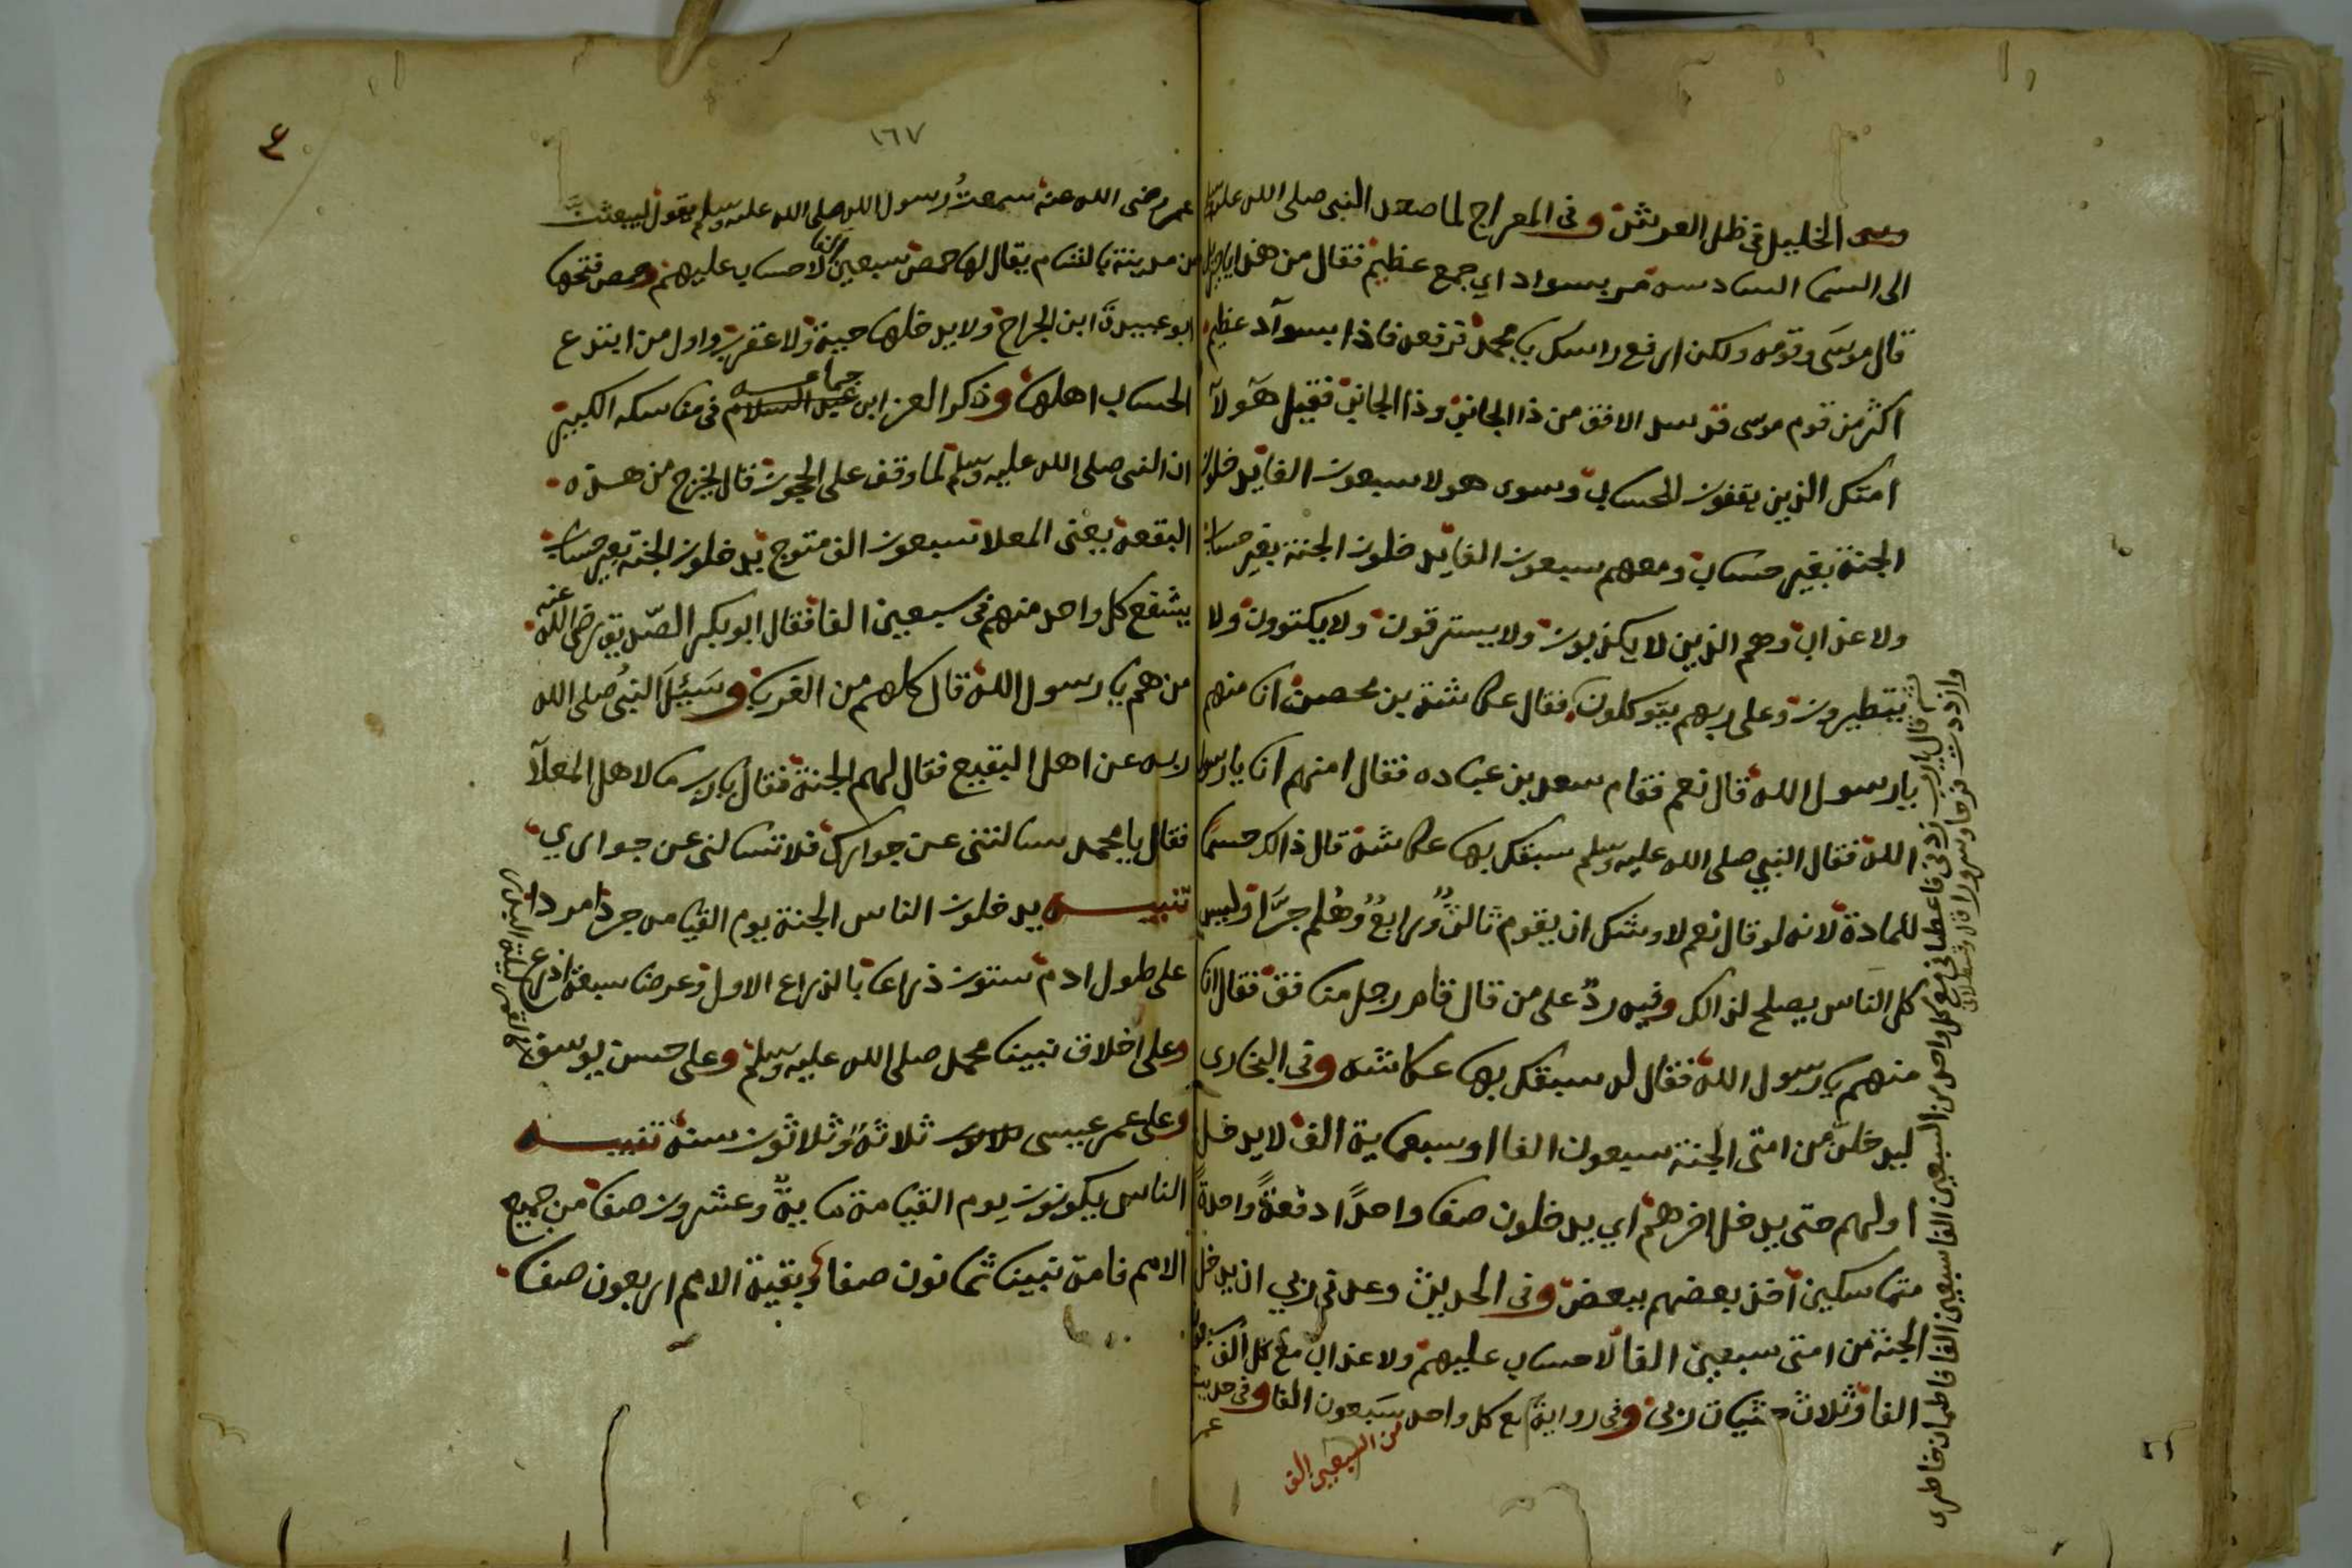 وسى الخليل في ظل العرش وفي المعراج لما صعد النبي صلى الله عليه وسلم
الى السما السادسه مر بسواد اي جمع عظيم فقال من هذا يا جبريل
قال موسى وقومه ولكن ارفع راسك يا محمد فرفعه فاذا بسوآد عظيم
اكثر من قوم موسى قد سد الافق من ذا الجانب وذا الجانب فقيل هولآ
امتك الذين يقفون للحساب وسوى هولا سبعون الفا يدخلون
الجنة بغير حساب ومعهم سبعون الفا يدخلون الجنة بغير حساب
ولا عذاب وهم الذين لا يكذبون ولا يسترقون ولا يكتوون ولا
يتطيرون وعلى ربهم يتوكلون فقال عكاشة بن محصن انا منهم
يا رسول الله قال نعم فقام سعد بن عباده فقال امنهم انا يا رسول
الله فقال النبي صلى الله عليه وسلم سبقك بها عكاشة قال ذالك حسمًا
للمادة لانه لو قال نعم لاوشك ان يقوم ثالثٌ ورابعٌ وهُلم جرَّا وليس
كل الناس يصلح لذالك وفيه ردٌ على من قال قام رجل منافق فقال انا
منهم يا رسول الله فقال له سبقك بها عكاشه وفي البخاري
ليدخلن من امتي الجنة سبعون الفا او سبعماية الف لا يدخل
اولهم حتى يدخل اخرهم اي يدخلون صفا واحدًا دفعةً واحدةً
متماسكين آخذ بعضهم ببعض وفي الحديث وعدني ربي ان يدخل
الجنة من امتي سبعين الفا لا حساب عليهم ولا عذاب مع كل الف سبعون
الفا وثلاث حثيات ربي وفي رواية مع كل واحد سبعون الفا وفي حديث
من السبعين الف
عمر
قال يارب زدني فاعطاني مع كل واحد من السبعين الفا سبعين الفا
وازددت فرحا وسرورا
١٦٧
٤
عمر رضى الله عنه سمعتُ رسول الله صلى الله عليه وسلم يقول ليبعثن
من مدينة بالشام يقال لها حمص سبعين الفا لا حساب عليهم وحمص فتحها
ابو عبيدة ابن الجراح ولا يدخلها حية ولا عقرب واول من ابتدع
الحساب اهلها وذكر العز ابن جماعه في مناسكه الكبير
ان النبي صلى الله عليه وسلم لما وقف على الحجون قال يخرج من هذه
البقعة يعنى المعلا سبعون الف متوج يدخلون الجنة بغير حساب
يشفع كل واحد منهم في سبعين الفا فقال ابو بكر الصّديق رضى الله عنه
من هم يا رسول الله قال كلهم من الغربا وسَئِلَ النبي صلى الله
ربه عن اهل البقيع فقال لهم الجنة فقال يا رب ما لاهل المعلآ
فقال يا محمد سالتني عن جوارك فلا تسالني عن جواري
تنبيـــه يدخلون الناس الجنة يوم القيامه جردا مردا
على طول ادم ستون ذراعا بالذراع الاول وعرضا سبعة اذرع
وعلى اخلاق نبينا محمد صلى الله عليه وسلم وعلى حسن يوسف
كالقمر ليلة البدر
وعلى عمر عيسى ثلاثة وثلاثون سنة تنبيـــه
الناس يكونون يوم القيامة ماية وعشرون صفا من جميع
الامم فامة نبينا ثمانون صفا وبقية الامم اربعون صفا